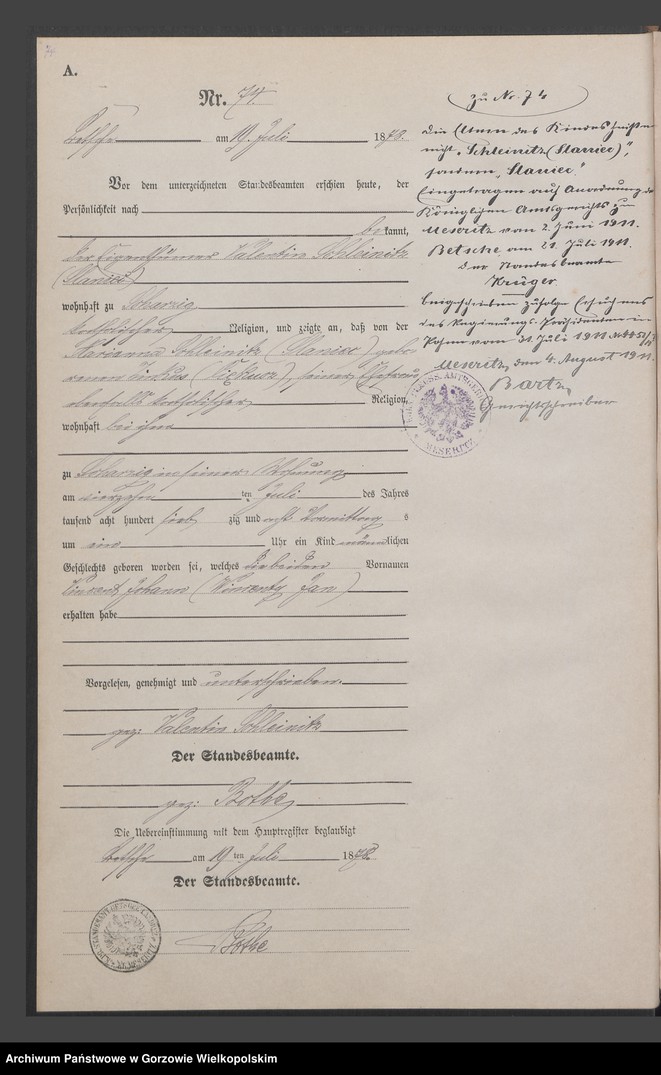 A.
Nr. 74.
Betsche am 19. Juli 1878.
Vor dem unterzeichneten Standesbeamten erschien heute, der
Persönlichkeit nach
bekannt,
der Eigenthümer Valentin Schleinitz
(Slaniec)
wohnhaft zu Scharzig
katholischer Religion, und zeigte an, daß von der
Marianna Schleinitz (Slaniec) gebo-
renen (Ciekusz), seiner Ehefrau
ebenfalls katholischer Religion,
wohnhaft bei ihm
zu Scharzig in seiner Wohnung
am vierzehn ten Juli des Jahres
tausend acht hundert siebzig und acht Vormittags
um ein Uhr ein Kind männlichen
Geschlechts geboren worden sei, welches die beiden Vornamen
Vincent Johann (Wincenty Jan)
erhalten habe
Vorgelesen, genehmigt und unterschrieben.
gez: Valentin Schleinitz
Der Standesbeamte.
gez: Bothe
Die Uebereinstimmung mit dem Hauptregister beglaubigt
Betsche am 19 ten Juli 1878.
Der Standesbeamte.
Bothe
zu Nr. 74
Die Eltern des Kindes heißen
nicht "Schleinitz (Slaniec)",
sondern "Slaniec"
Eingetragen auf Anordnung des
Königlichen Amtsgerichts zu
Meseritz vom 2. Juni 1911.
Betsche am 21. Juli 1911.
Der Standesbeamte
Krüger
beigeschrieben zufolge Ersuchens
des Regierungs-Präsidenten in
Posen vom 31. Juli 1911
Meseritz, den 4. August 1911.
Bartz
Gerichtsschreiber
PREUSS. AMTSGERICHT
MESERITZ
Archiwum Państwowe w Gorzowie Wielkopolskim